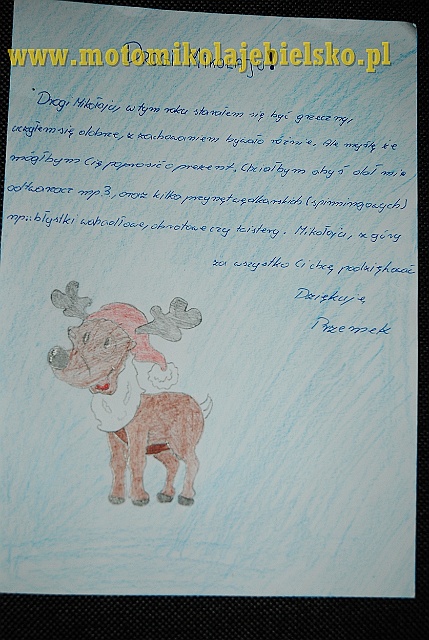 DROGI MIKOŁAJU!
www.motomikolajebielsko.pl
Drogi Mikołaju, w tym roku starałem się być grzeczny,
uczyłem się dobrze, z zachowaniem bywało różnie. Ale myślę że
mógłbym Cię poprosić o prezent. Chciałbym abyś dał mi
odtwarzacz mp3, oraz kilka przynęt wędkarskich (spinningowych)
np.: błystki wahadłowe, obrotowe czy twistery. Mikołaju, z góry
za wszystko Ci chcę podziękować
Dziękuję
Przemek